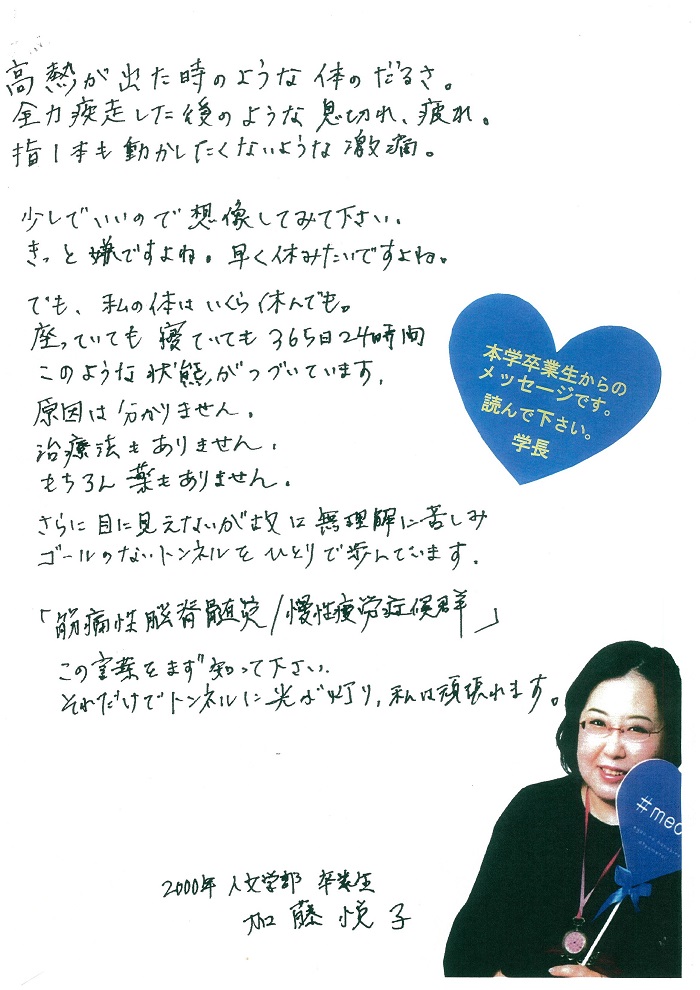 高熱が出た時のような体のだるさ。
全力疾走した後のような息切れ、疲れ。
指1本も動かしたくないような激痛。
少しでいいので想像してみて下さい。
きっと嫌ですよね。早く休みたいですよね。
でも、私の体はいくら休んでも。
座っていても寝ていても365日24時間
このような状態がつづいています。
原因は分かりません。
治療法もありません。
もちろん薬もありません。
さらに目に見えないが故に無理解に苦しみ
ゴールのないトンネルをひとりで歩んでいます。
「筋痛性脳脊髄炎/慢性疲労症候群」
この言葉をまず知って下さい。
それだけでトンネルに光が灯り、私は頑張れます。
本学卒業生からの
メッセージです。
読んで下さい。
学長
#mec
2000年 人文学部 卒業生
加藤悦子